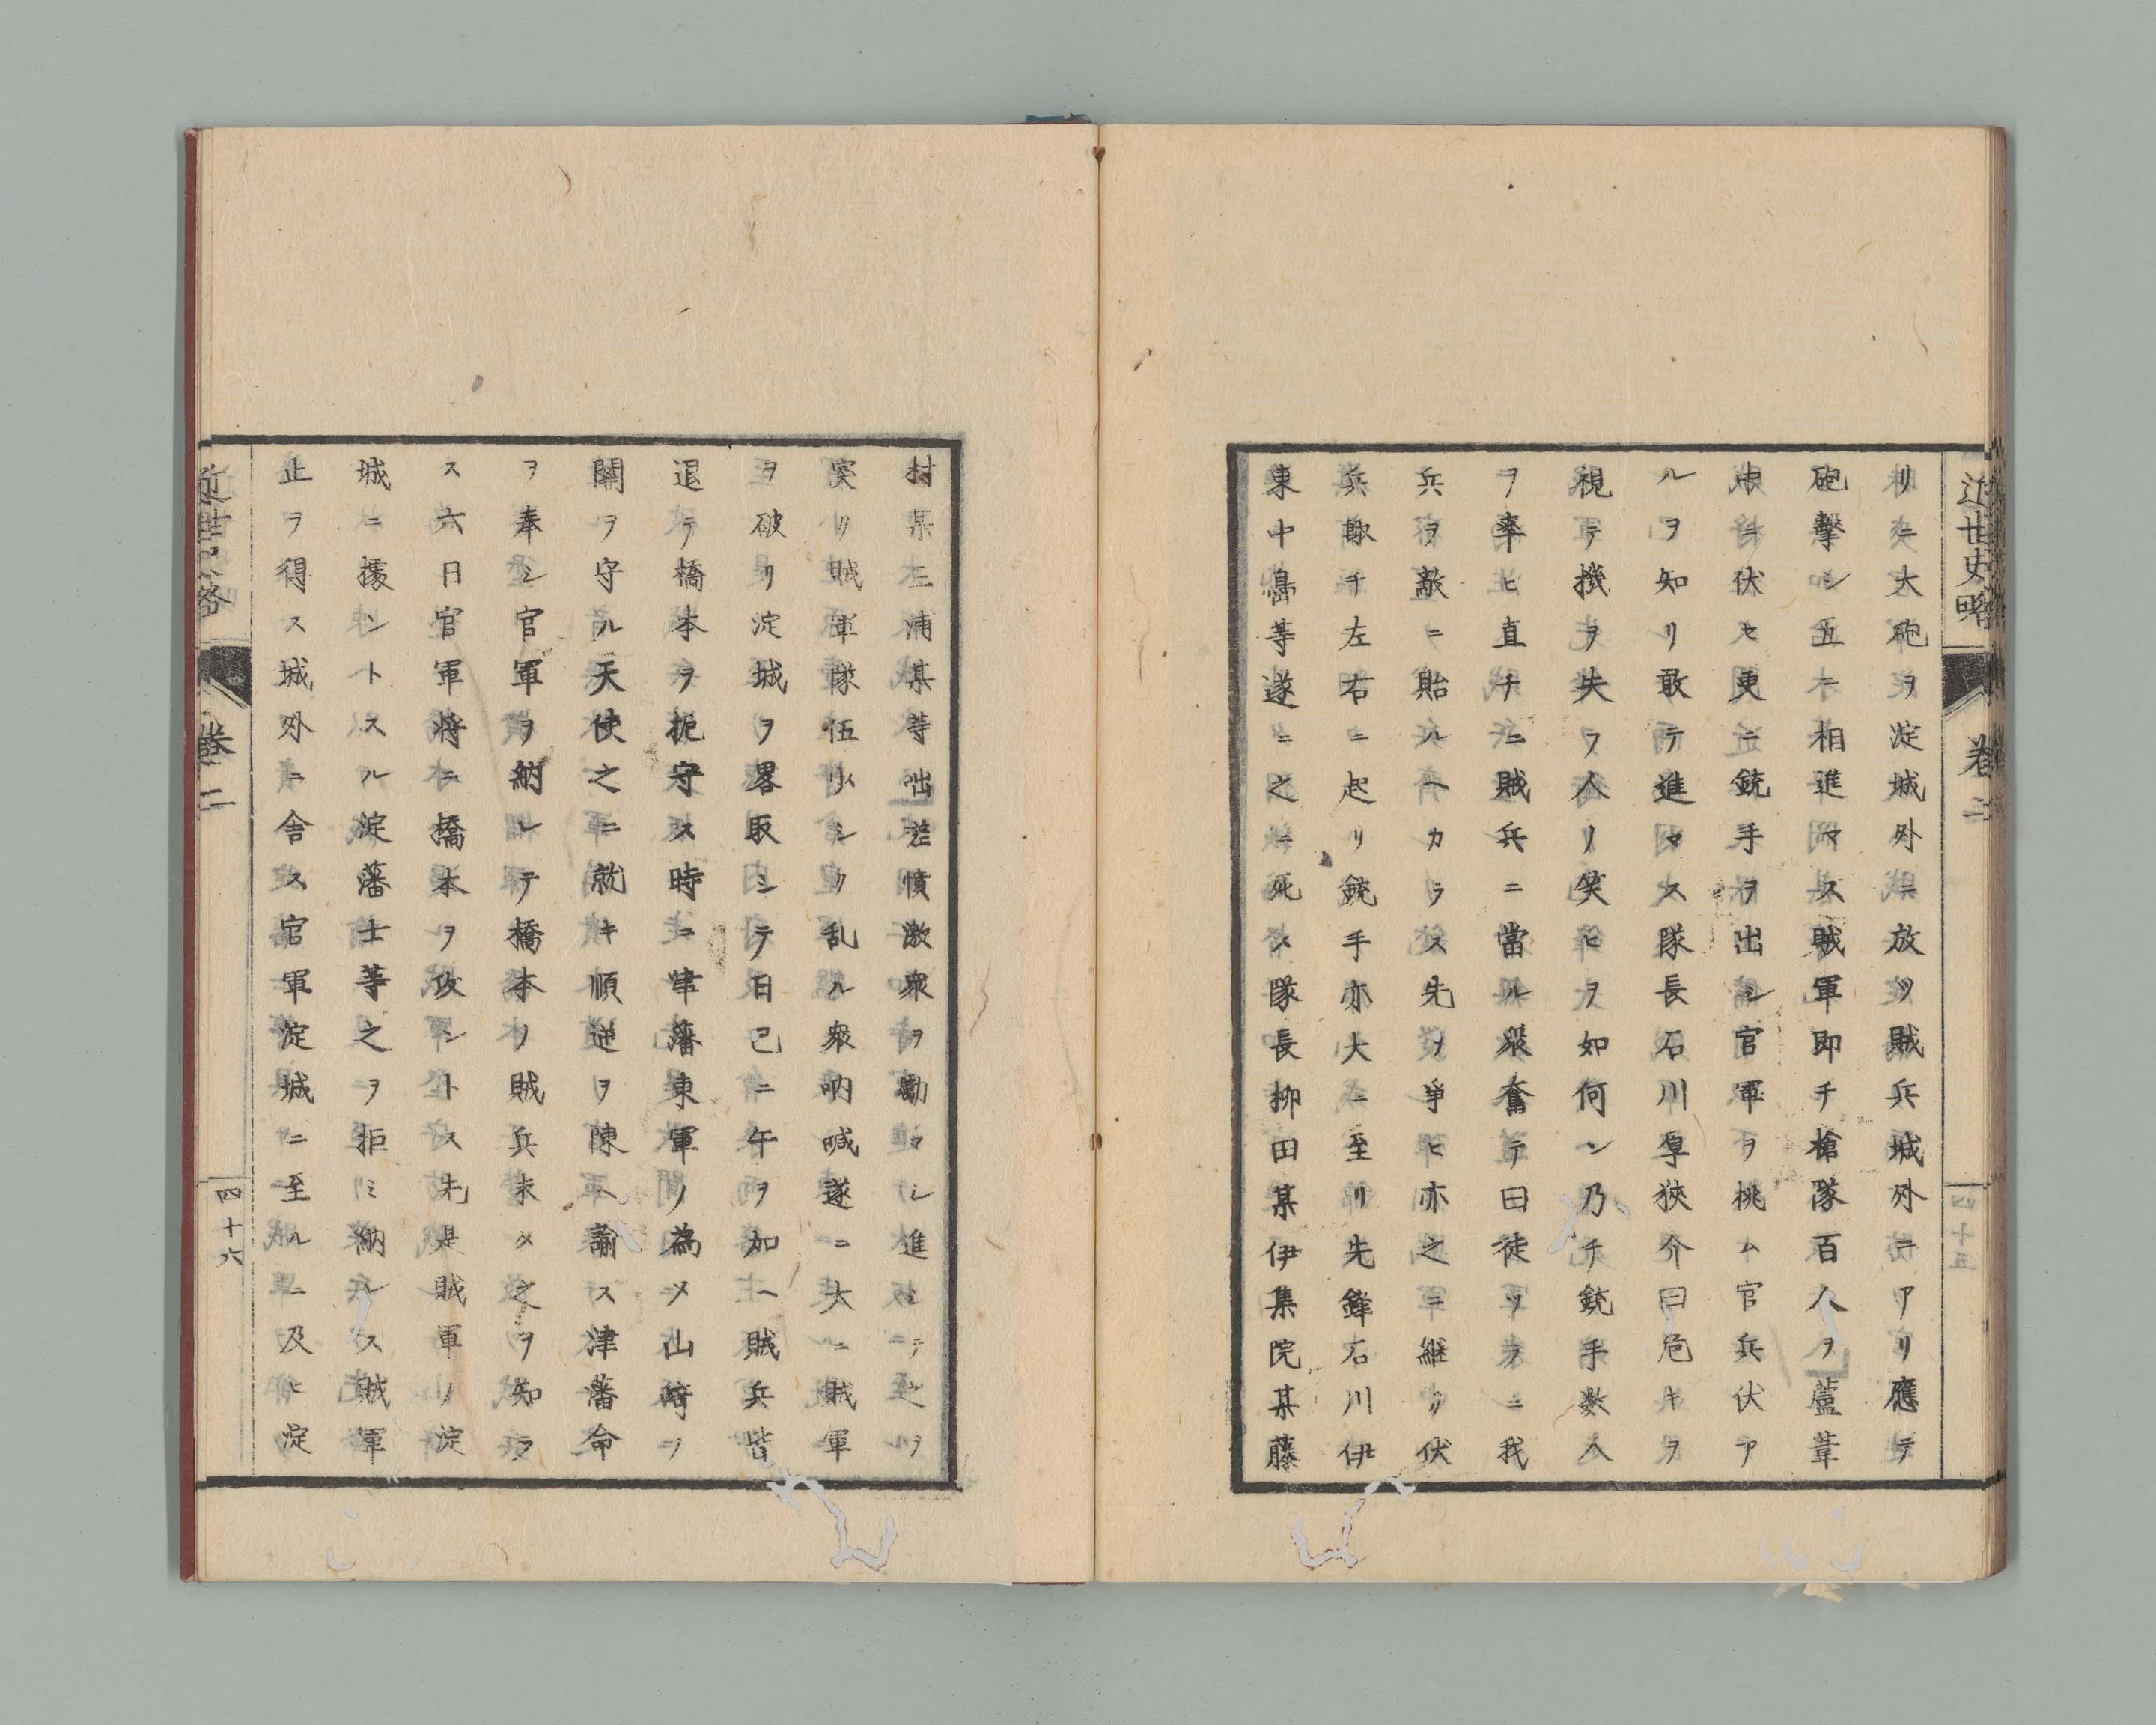 近世史略
卷二
四十五
リニ大砲ヲ淀城外ニ放ツ賊兵城外ニアリ應テ
砲擊シ五ニ相進マス賊軍即チ槍隊百人ヲ蘆葦
中ニ伏セ更ニ銃手ヲ出シ官軍ヲ挑ム官兵伏ア
ルヲ知リ敢テ進マス隊長石川厚狹介曰危キヲ
視テ機ヲ失フ人ノ笑ヒヲ如何ン乃チ銃手数人
ヲ率ヒ直チニ賊兵ニ當ル衆奮テ曰徒ツラニ我
兵ヲ敵ニ貽ルヘカラス先ヲ爭ヒ亦之ニ継ク伏
兵歘チ左右ニ起リ銃手亦大ニ至リ先鋒石川伊
東中島等遂ニ之ニ死ス隊長柳田某伊集院某藤
村某三浦某等咄差憤激衆ヲ勵マシ進シテ之ヲ
突ク賊軍隊伍少シク乱ル衆吶喊遂ニ大ニ賊軍
ヲ破リ淀城ヲ畧取シテ日已ニ午ヲ加ヘ賊兵皆
退テ橋本ヲ扼守ス時ニ津藩東軍ノ為メ山﨑ノ
關ヲ守ル天使之ニ就キ順逆ヲ陳ヘ諭ス津藩命
ヲ奉シ官軍ヲ納レテ橋本ノ賊兵未タ之ヲ知ラ
ス六日官軍将ニ橋本ヲ攻ントス先是賊軍ノ淀
城ニ據ントスル淀藩士等之ヲ拒ミ納レス賊軍
止ヲ得ス城外ニ舎ス官軍淀城ニ至ルニ及ヒ淀
近世史略
卷二
四十六